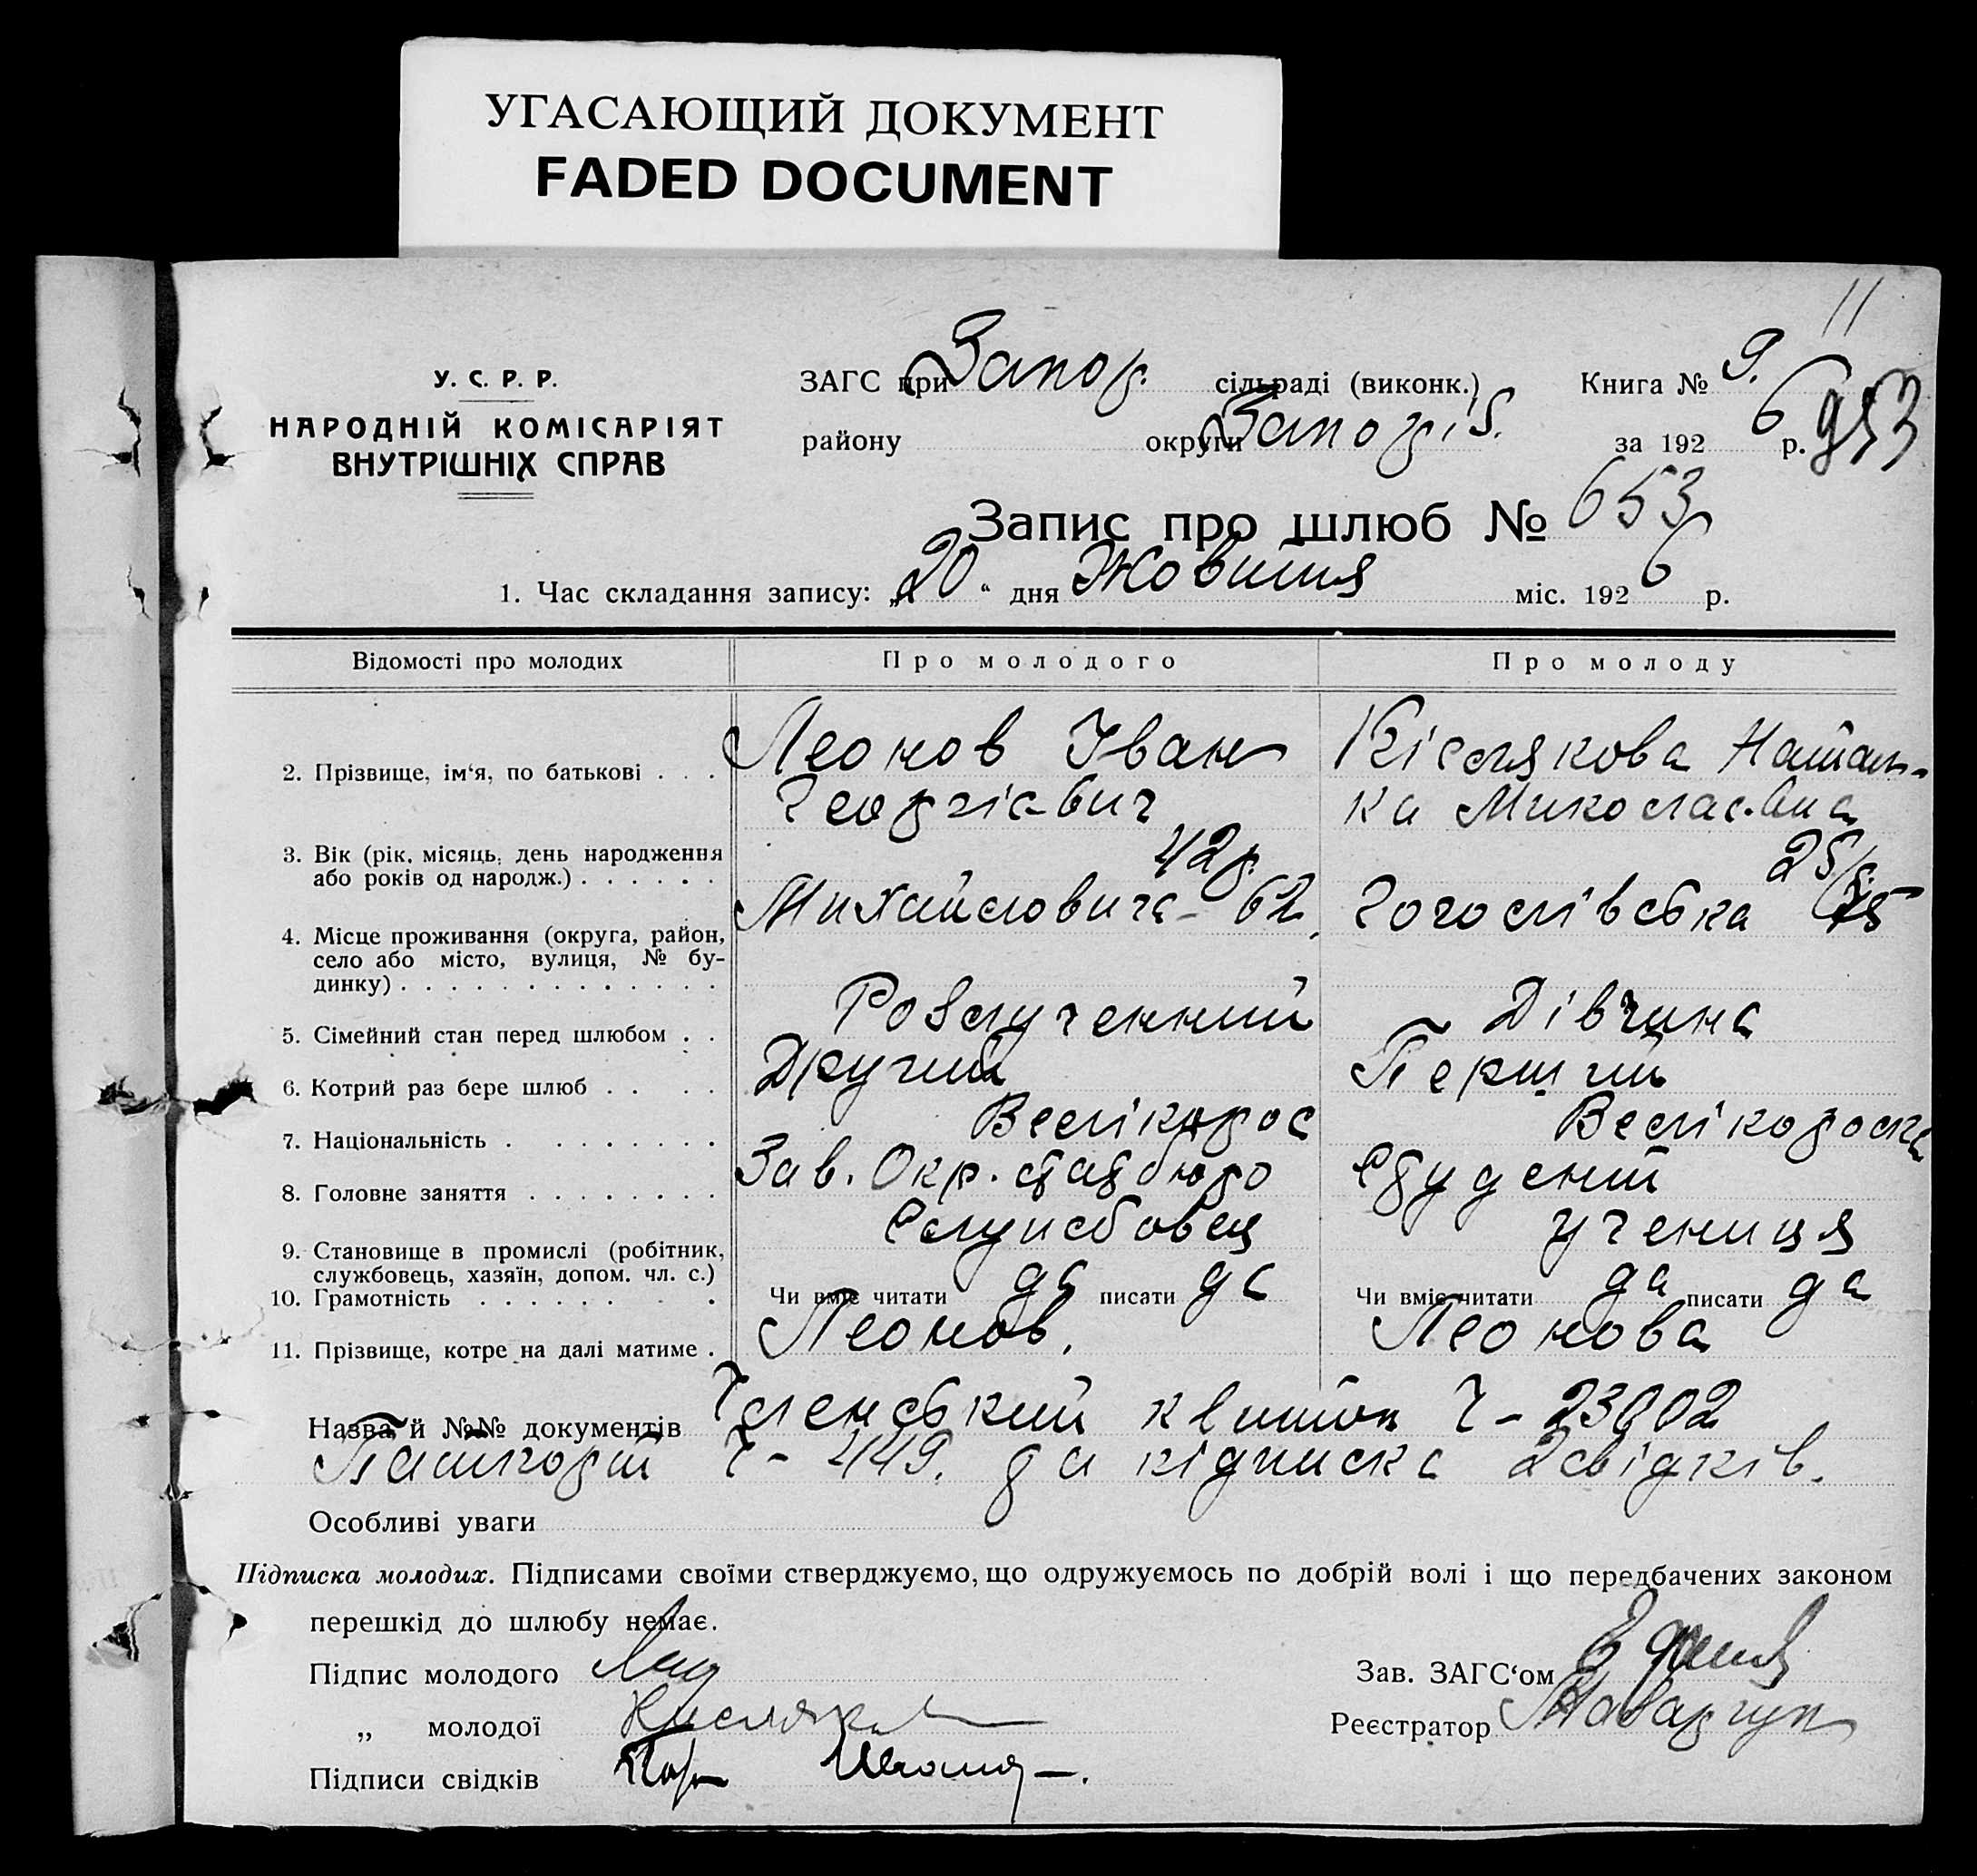 УГАСАЮЩИЙ ДОКУМЕНТ
FADED DOCUMENT
11
У. С. Р. Р.
НАРОДНІЙ КОМІСАРІЯТ
ВНУТРІШНІХ СПРАВ
ЗАГС при Запор. сільраді (виконк.) Книга № 9.
району округи Запоріз. за 1926 р. 953
Запис про шлюб № 653
1. Час складання запису: „20“ дня Жовтня міс. 1926 р.
Відомості про молодих Про молодого Про молоду
2. Прізвище, ім‘я, по батькові . . . Леонов Іван Кіслякова Наталь-
Георгієвич ка Миколаєвна
3. Вік (рік, місяць, день народження 42 р. 25 р.
або років од народж.) . . . . . .
Михайловича - 62. Гоголівська 75
4. Місце проживання (округа, район,
село або місто, вулиця, № бу-
динку) . . . . . . . . . . . . .
5. Сімейний стан перед шлюбом . . Розлученний Дівчина
6. Котрий раз бере шлюб . . . . Другий Перший
7. Національність . . . . . . . . Велікорос Велікороска
8. Головне заняття . . . . . . . . Зав. Окр. стат бюро Студент
9. Становище в промислі (робітник, Службовец учениця
службовець, хазяїн, допом. чл. с.)
10. Грамотність . . . . . . . Чи вміє читати да писати да Чи вміє читати да писати да
11. Прізвище, котре на далі матиме . Леонов. Леонова
Назва й №№ документів Членський квиток Ч - 23002
Пашпорт Ч - 449. та підписка 2 свідків.
Особливі уваги
Підписка молодих. Підписами своїми стверджуємо, що одружуємось по добрій волі і що передбачених законом
перешкід до шлюбу немає.
Підпис молодого Зав. ЗАГС‘ом
„ молодої Кислякова Реєстратор
Підписи свідків